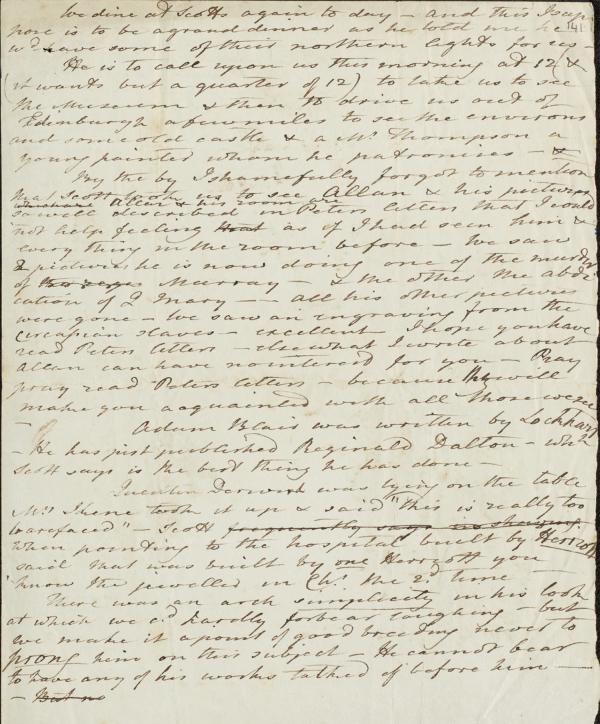 We dine at Scotts again to day – and this I sup
141
pose is to be a grand dinner as he told me he
wd have some of their northern lights for us –
He is to call upon us this morning at 12 &
(it wants but a quarter of 12) to take us to see
the Museum & then to drive us out of
Edinburgh a few miles to see the environs
and some old castle & a Mr Thompson a
young painter whom he patronises – &
By the by I shamefully forgot to mention
that Scott took us to see Allan & his pictures
Allan & his room are
so well described in Peters letters that I could
not help feeling that as if I had seen him &
every thing in the room before – We saw
2 pictures he is now doing one of the murder
of Murray – & the other the abdi
cation of Q Mary – – all his other pictures
were gone – We saw an engraving from the
Circassian slaves – excellent I hope you have
read Peters letters – else what I write about
Allan can have no interest for you – Pray
pray read Peters letters – because they will
make you acquainted with all those we see
–
Adam Blair was written by Lockhart
– He has just published Reginald Dalton – wch
Scott says is the best thing he has done –
Quentin Durward was lying on the table
Mrs Skene took it up & said "this is really too
barefaced" – Scott frequently says
When pointing to the hospital built by Herriott
said that was built by one Herriott you
know the jeweller in Chs the 2d time
There was an arch simplicity in his look
at which we cd hardly forbear laughing – but
we make it a point of good breeding never to
prong him on this subject – He cannot bear
to have any of his works talked of before him –
– But no